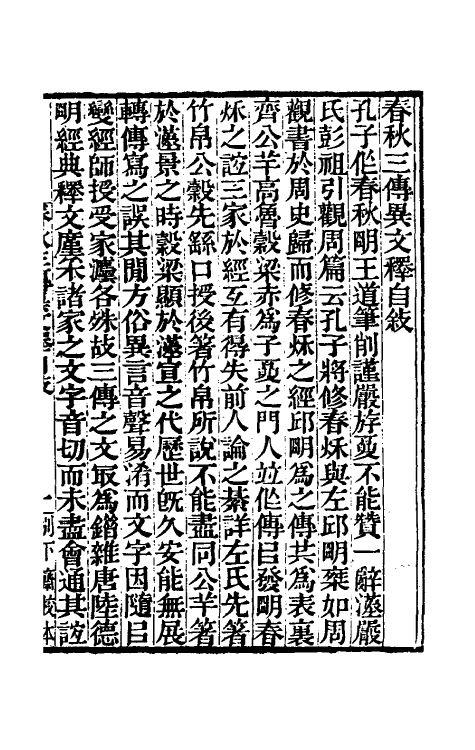 春秋三傳異文釋自敘
孔子作春秋朙王道筆削謹嚴斿夏不能贊一辭漢嚴
氏彭祖引觀周篇云孔子將修春秌與左邱朙椉如周
觀書於周史歸而修春秌之經邱朙爲之傳共爲表裏
齊公羊高魯穀梁赤爲子夏之門人竝作傳㠯發朙春
秌之誼三家於經互有得失前人論之綦詳左氏先箸
竹帛公穀先繇口授後箸竹帛所說不能盡同公羊箸
於漢景之時穀梁顯於漢宣之代歷世旣久安能無展
轉傳寫之誤其閒方俗異言音聲易淆而文字因隨㠯
變經師授受家灋各殊故三傳之文㝡爲錯雜唐陸德
朙經典釋文廑釆諸家之文字音切而未盡會通其誼